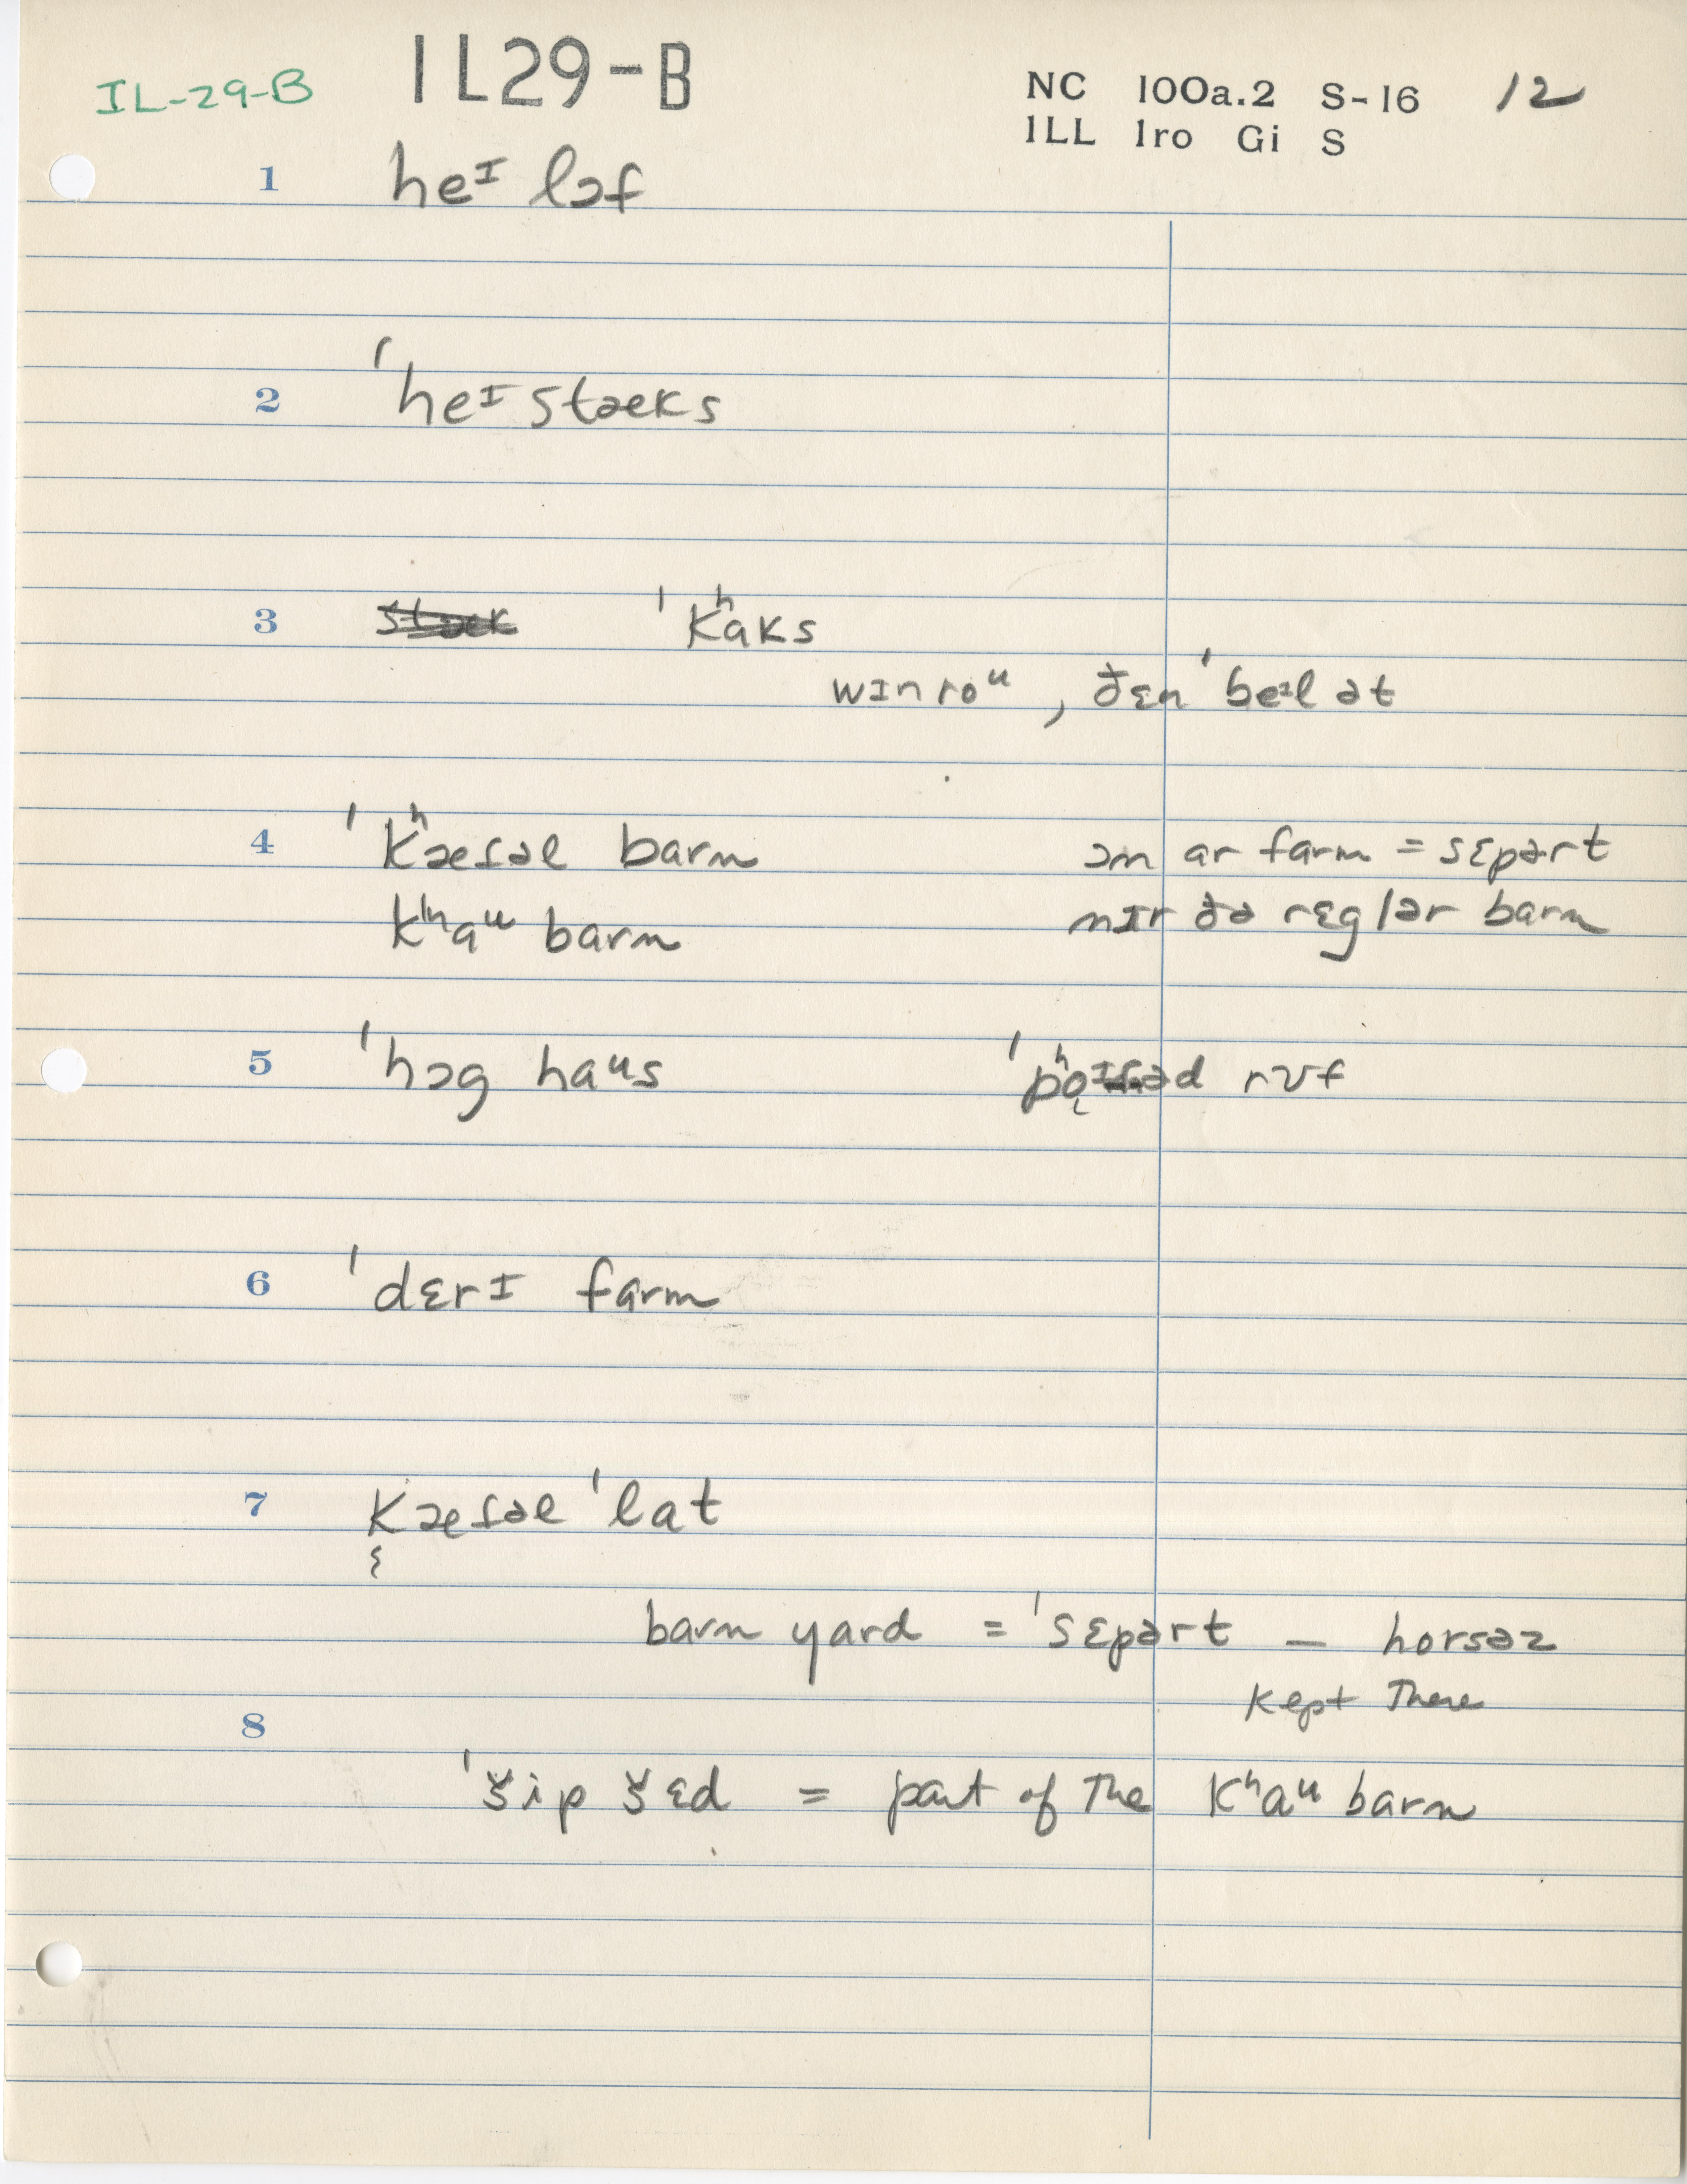 IL-29-B 1L29-B NC 100a.2 S-16 12
1LL 1ro Gi S
1 heᴵ lɔf
2 ˈheᴵstæks
3 ˈkʰaks
wɪnroᵘ, ðɛn ˈbeᴵl ət
4 ˈkʰæɾəl barn ɔn ar farm = sɛpərt
kʰaᵘ barn nɪr ðə rɛglər barn
5 ˈhɔg haᵘs ˈpʰǫᴵəd rʊf
6 ˈdɛrɪ farm
7 kæɾəl ˈlat
barn yard = ˈsɛpərt — horsəz
kept There
8
ˈšip šɛd = part of The kʰaᵘ barn